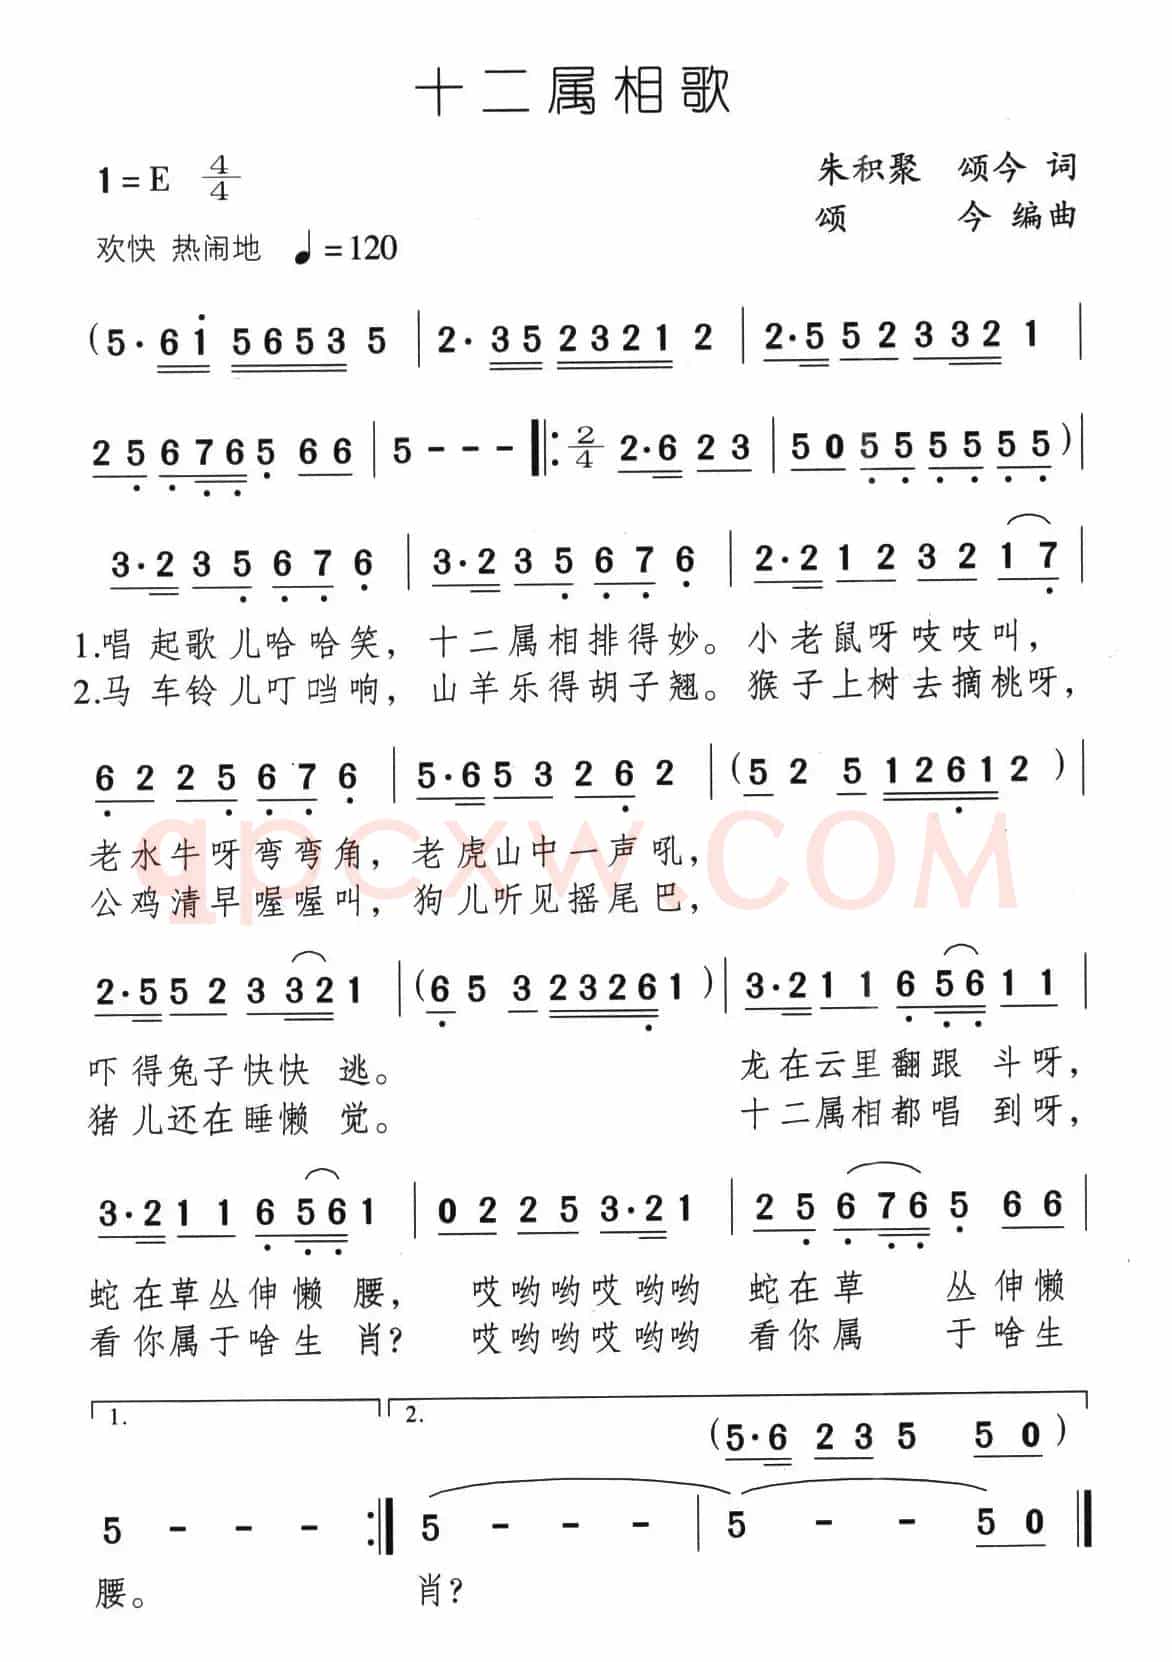 十二属相歌
1=E 4/4 朱积聚 颂今 词
颂 今 编曲
欢快 热闹地 ♩=120
(5·6i 56535 | 2·35 23212 | 2·552 3321 |
256765 66 | 5--- ‖: 2/4 2·623 | 50555555) |
3·235676 | 3·235676 | 2·2123217 |
1.唱起歌儿哈哈笑，十二属相排得妙。小老鼠呀吱吱叫，
2.马车铃儿叮当响，山羊乐得胡子翘。猴子上树去摘桃呀，
6225676 | 5·653262 | (52512612) |
老水牛呀弯弯角，老虎山中一声吼，
公鸡清早喔喔叫，狗儿听见摇尾巴，
qpcxw.COM
2·5523321 | (65323261) | 3·21165611 |
吓得兔子快快逃。 龙在云里翻跟斗呀，
猪儿还在睡懒觉。 十二属相都唱到呀，
3·2116561 | 02253·21 | 256765 66 |
蛇在草丛伸懒腰，哎哟哟哎哟哟 蛇在草丛伸懒
看你属于啥生肖?哎哟哟哎哟哟 看你属于啥生
1. 2.
(5·6 235 50)
5--- :‖ 5--- | 5--50 ‖
腰。 肖?